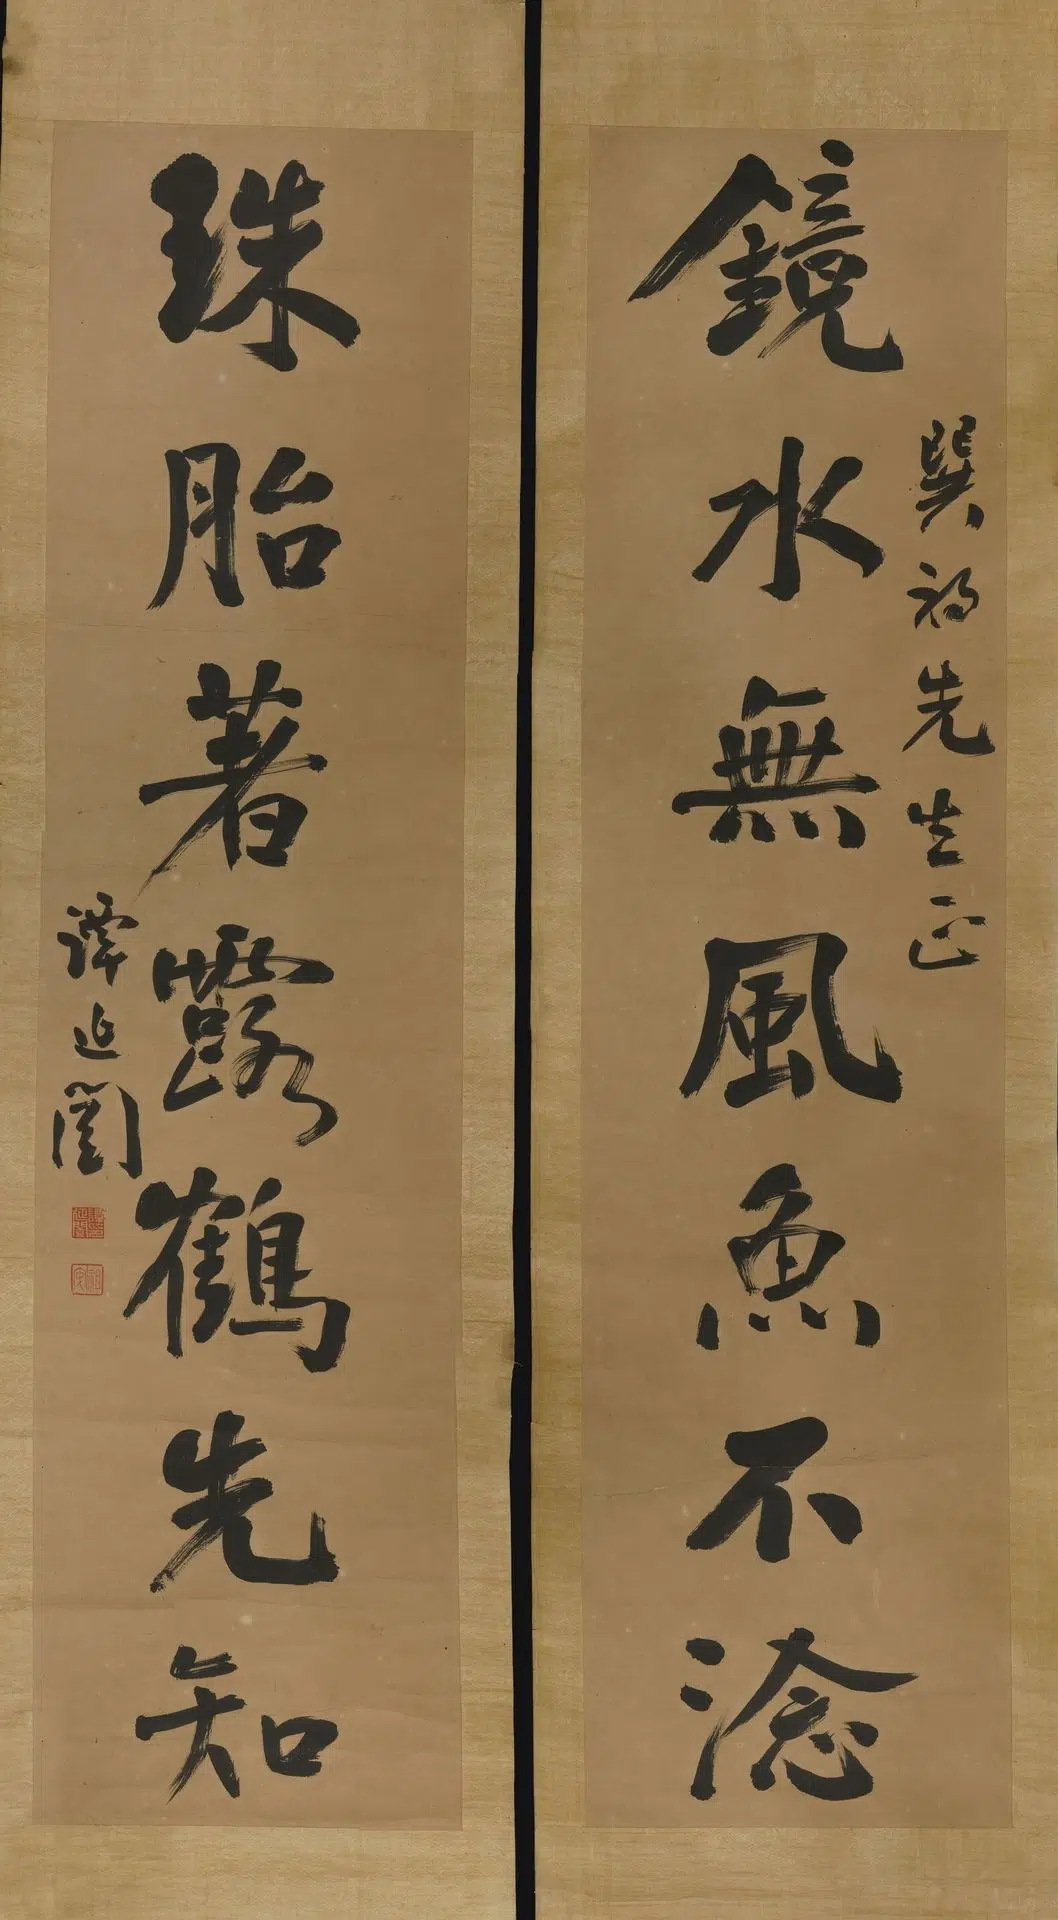 鏡水無風魚不淰
巽初先生正
珠胎著露鶴先知
譚延闓